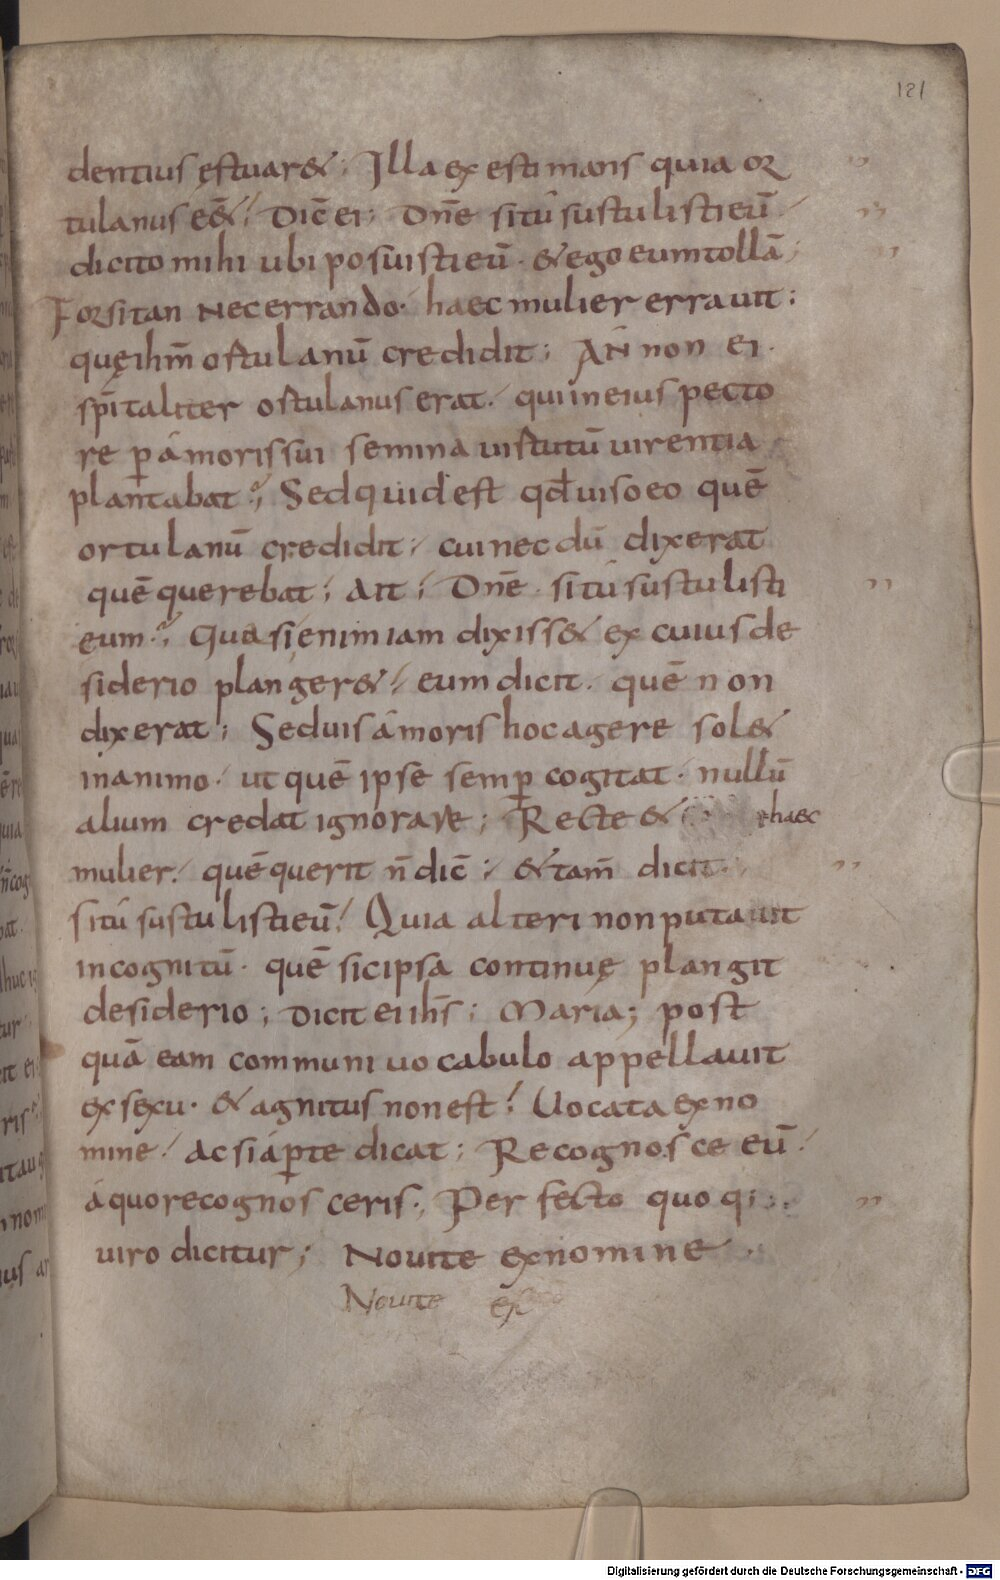 121
dentius ęstuar&; Illa exestimans quia or
tulanus eē&; Dic̄ ei; Dn̄e situ sustulisti eū
dicito mihi ubi posuisti eū. & ego eum tollā;
Forsitan nec errando. haec mulier errauit;
quę ihm̄ ortulanū credidit; An non ei
sp̄italiter ortulanus erat. qui in eius pecto
re p amoris sui semina uirtutū uirentia
plantabat; Sed quid est qd̄ uiso eo quē
ortulanū credidit; cui necdū dixerat
quē querebat; Ait; Dn̄e. situ sustulisti
eum; Quasi enim iam dixiss& ex cuius de
siderio planger& eum dicit. quē non
dixerat; Sed uis amoris hoc agere sol&
in animo. ut quē ipse semp cogitat. nullū
alium credat ignorare; Recte & haec
mulier. quē querit n̄ dic̄; & tam̄ dicit
situ sustulisti eū; Quia alteri non putauit
incognitū. quē sic ipsa continuę plangit
desiderio; Dicit ei ihs̄; Maria; post
quā eam communi uocabulo appellauit
ex sexu. & agnitus non est; Uocata ex no
mine. Ac si apte dicat; Recognosce eū
a quo recognosceris; Perfecto quoq;
uiro dicitur; Nouite ex nomine
Nouite ex
Digitalisierung gefördert durch die Deutsche Forschungsgemeinschaft - DFG